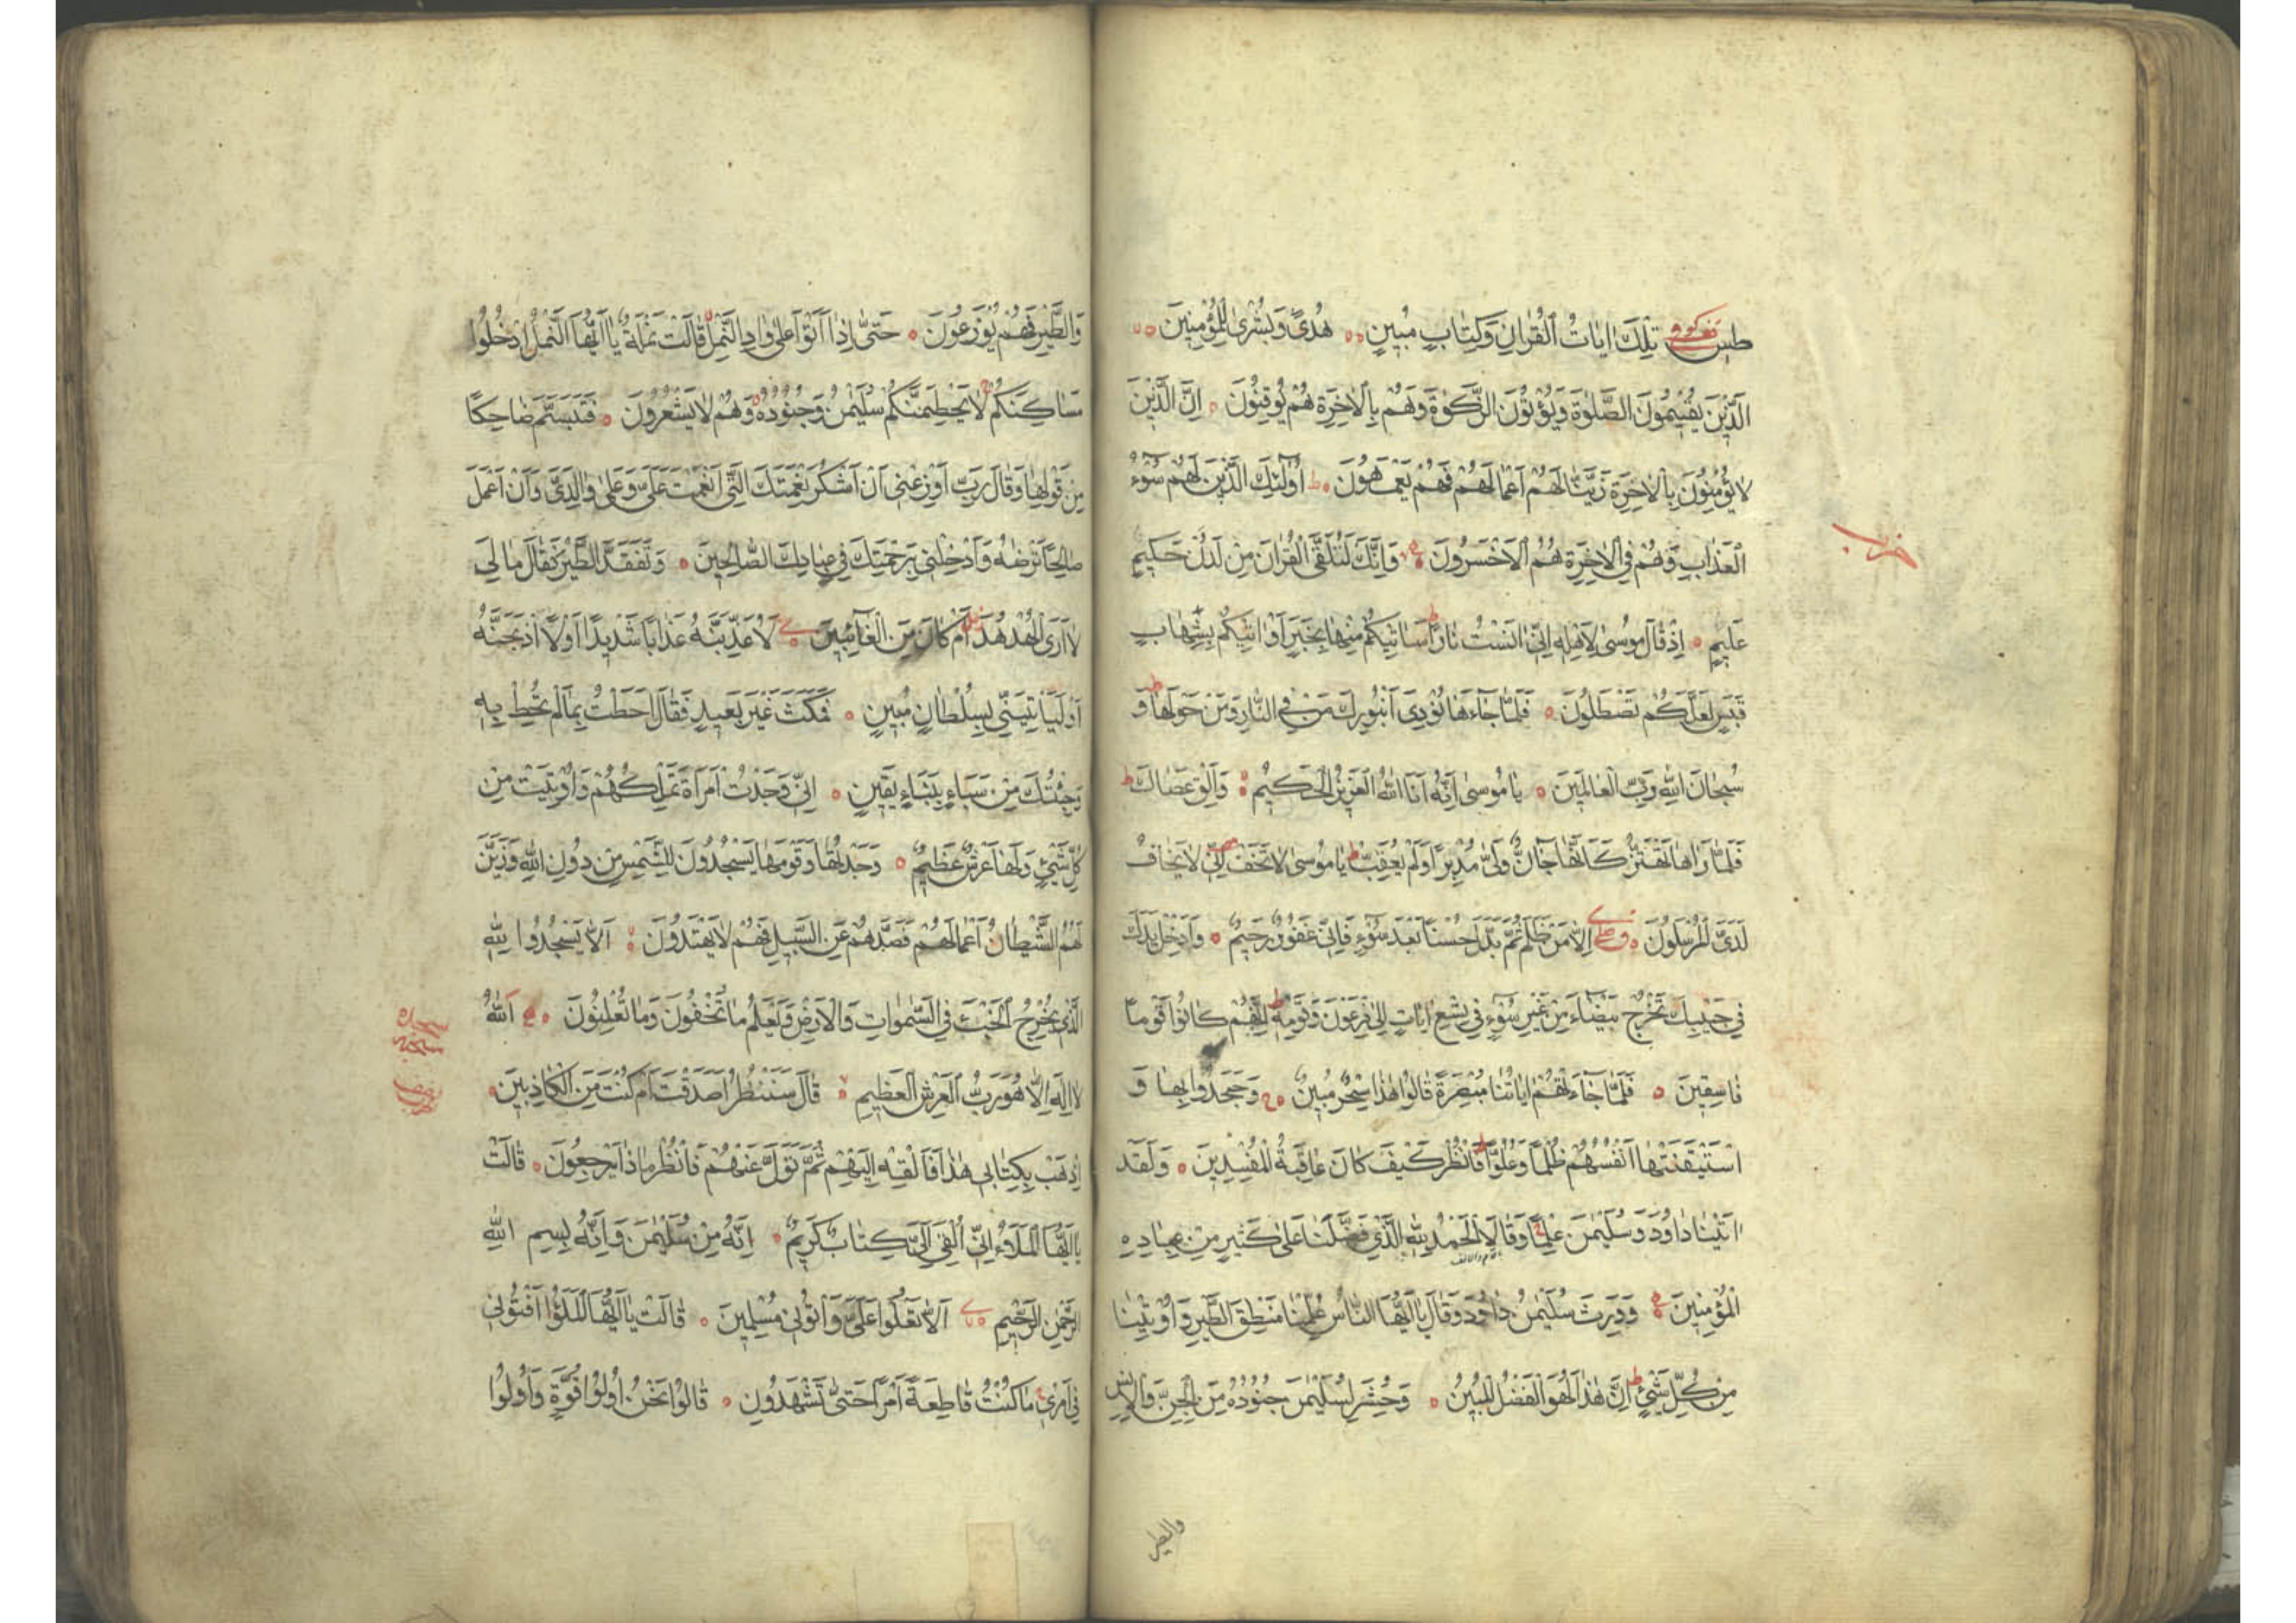 طس تِلْكَ اٰيَاتُ الْقُرْاٰنِ وَكِتَابٍ مُبِينٍ هُدًى وَبُشْرٰى لِلْمُؤْمِنِينَ
اَلَّذِينَ يُقِيمُونَ الصَّلٰوةَ وَيُؤْتُونَ الزَّكٰوةَ وَهُمْ بِالْاٰخِرَةِ هُمْ يُوقِنُونَ اِنَّ الَّذِينَ
لَا يُؤْمِنُونَ بِالْاٰخِرَةِ زَيَّنَّا لَهُمْ اَعْمَالَهُمْ فَهُمْ يَعْمَهُونَ ط اُولٰئِكَ الَّذِينَ لَهُمْ سُوٓءُ
الْعَذَابِ وَهُمْ فِي الْاٰخِرَةِ هُمُ الْاَخْسَرُونَ وَاِنَّكَ لَتُلَقَّى الْقُرْاٰنَ مِنْ لَدُنْ حَكِيمٍ
حزب
عَلِيمٍ اِذْ قَالَ مُوسٰى لِاَهْلِهِ اِنِّي اٰنَسْتُ نَارًا ط سَاٰتِيكُمْ مِنْهَا بِخَبَرٍ اَوْ اٰتِيكُمْ بِشِهَابٍ
قَبَسٍ لَعَلَّكُمْ تَصْطَلُونَ فَلَمَّا جَاءَهَا نُودِيَ اَنْ بُورِكَ مَنْ فِي النَّارِ وَمَنْ حَوْلَهَا ط وَ
سُبْحَانَ اللّٰهِ رَبِّ الْعَالَمِينَ يَا مُوسٰى اِنَّهُ اَنَا اللّٰهُ الْعَزِيزُ الْحَكِيمُ وَاَلْقِ عَصَاكَ ط
فَلَمَّا رَاٰهَا تَهْتَزُّ كَاَنَّهَا جَانٌّ وَلّٰى مُدْبِرًا وَلَمْ يُعَقِّبْ ط يَا مُوسٰى لَا تَخَفْ اِنِّي لَا يَخَافُ
لَدَيَّ الْمُرْسَلُونَ اِلَّا مَنْ ظَلَمَ ثُمَّ بَدَّلَ حُسْنًا بَعْدَ سُوٓءٍ فَاِنِّي غَفُورٌ رَحِيمٌ وَاَدْخِلْ يَدَكَ
فِي جَيْبِكَ تَخْرُجْ بَيْضَاءَ مِنْ غَيْرِ سُوٓءٍ فِي تِسْعِ اٰيَاتٍ اِلٰى فِرْعَوْنَ وَقَوْمِهِ ط اِنَّهُمْ كَانُوا قَوْمًا
فَاسِقِينَ فَلَمَّا جَاءَتْهُمْ اٰيَاتُنَا مُبْصِرَةً قَالُوا هٰذَا سِحْرٌ مُبِينٌ وَجَحَدُوا بِهَا وَ
اسْتَيْقَنَتْهَا اَنْفُسُهُمْ ظُلْمًا وَعُلُوًّا ط فَانْظُرْ كَيْفَ كَانَ عَاقِبَةُ الْمُفْسِدِينَ وَلَقَدْ
اٰتَيْنَا دَاوُدَ وَسُلَيْمٰنَ عِلْمًا وَقَالَا الْحَمْدُ لِلّٰهِ الَّذِي فَضَّلَنَا عَلٰى كَثِيرٍ مِنْ عِبَادِهِ
الْمُؤْمِنِينَ وَوَرِثَ سُلَيْمٰنُ دَاوُدَ وَقَالَ يَا اَيُّهَا النَّاسُ عُلِّمْنَا مَنْطِقَ الطَّيْرِ وَاُوتِينَا
مِنْ كُلِّ شَيْءٍ ط اِنَّ هٰذَا لَهُوَ الْفَضْلُ الْمُبِينُ وَحُشِرَ لِسُلَيْمٰنَ جُنُودُهُ مِنَ الْجِنِّ وَالْاِنْسِ
والطير
وَالطَّيْرِ فَهُمْ يُوزَعُونَ حَتّٰى اِذَا اَتَوْا عَلٰى وَادِ النَّمْلِ قَالَتْ نَمْلَةٌ يَا اَيُّهَا النَّمْلُ ادْخُلُوا
مَسَاكِنَكُمْ لَا يَحْطِمَنَّكُمْ سُلَيْمٰنُ وَجُنُودُهُ وَهُمْ لَا يَشْعُرُونَ فَتَبَسَّمَ ضَاحِكًا
مِنْ قَوْلِهَا وَقَالَ رَبِّ اَوْزِعْنِي اَنْ اَشْكُرَ نِعْمَتَكَ الَّتِي اَنْعَمْتَ عَلَيَّ وَعَلٰى وَالِدَيَّ وَاَنْ اَعْمَلَ
صَالِحًا تَرْضٰهُ وَاَدْخِلْنِي بِرَحْمَتِكَ فِي عِبَادِكَ الصَّالِحِينَ وَتَفَقَّدَ الطَّيْرَ فَقَالَ مَا لِيَ
لَا اَرَى الْهُدْهُدَ اَمْ كَانَ مِنَ الْغَائِبِينَ لَاُعَذِّبَنَّهُ عَذَابًا شَدِيدًا اَوْ لَاَاذْبَحَنَّهُ
اَوْ لَيَأْتِيَنِّي بِسُلْطَانٍ مُبِينٍ فَمَكَثَ غَيْرَ بَعِيدٍ فَقَالَ اَحَطْتُ بِمَا لَمْ تُحِطْ بِهِ
وَجِئْتُكَ مِنْ سَبَاءٍ بِنَبَاءٍ يَقِينٍ اِنِّي وَجَدْتُ امْرَاَةً تَمْلِكُهُمْ وَاُوتِيَتْ مِنْ
كُلِّ شَيْءٍ وَلَهَا عَرْشٌ عَظِيمٌ وَجَدْتُهَا وَقَوْمَهَا يَسْجُدُونَ لِلشَّمْسِ مِنْ دُونِ اللّٰهِ وَزَيَّنَ
لَهُمُ الشَّيْطَانُ اَعْمَالَهُمْ فَصَدَّهُمْ عَنِ السَّبِيلِ فَهُمْ لَا يَهْتَدُونَ اَلَّا يَسْجُدُوا لِلّٰهِ
الَّذِي يُخْرِجُ الْخَبْءَ فِي السَّمٰوَاتِ وَالْاَرْضِ وَيَعْلَمُ مَا تُخْفُونَ وَمَا تُعْلِنُونَ اَللّٰهُ
لَا اِلٰهَ اِلَّا هُوَ رَبُّ الْعَرْشِ الْعَظِيمِ قَالَ سَنَنْظُرُ اَصَدَقْتَ اَمْ كُنْتَ مِنَ الْكَاذِبِينَ
اِذْهَبْ بِكِتَابِي هٰذَا فَاَلْقِهْ اِلَيْهِمْ ثُمَّ تَوَلَّ عَنْهُمْ فَانْظُرْ مَاذَا يَرْجِعُونَ قَالَتْ
يَا اَيُّهَا الْمَلَؤُا اِنِّي اُلْقِيَ اِلَيَّ كِتَابٌ كَرِيمٌ اِنَّهُ مِنْ سُلَيْمٰنَ وَاِنَّهُ بِسْمِ اللّٰهِ
الرَّحْمٰنِ الرَّحِيمِ اَلَّا تَعْلُوا عَلَيَّ وَاْتُونِي مُسْلِمِينَ قَالَتْ يَا اَيُّهَا الْمَلَؤُا اَفْتُونِي
فِي اَمْرِي مَا كُنْتُ قَاطِعَةً اَمْرًا حَتّٰى تَشْهَدُونِ قَالُوا نَحْنُ اُولُوا قُوَّةٍ وَاُولُوا